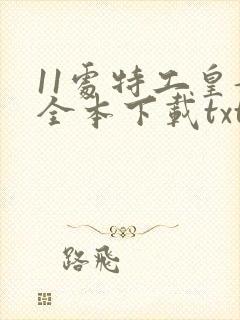 11處特工皇
全本下載txt
路飛